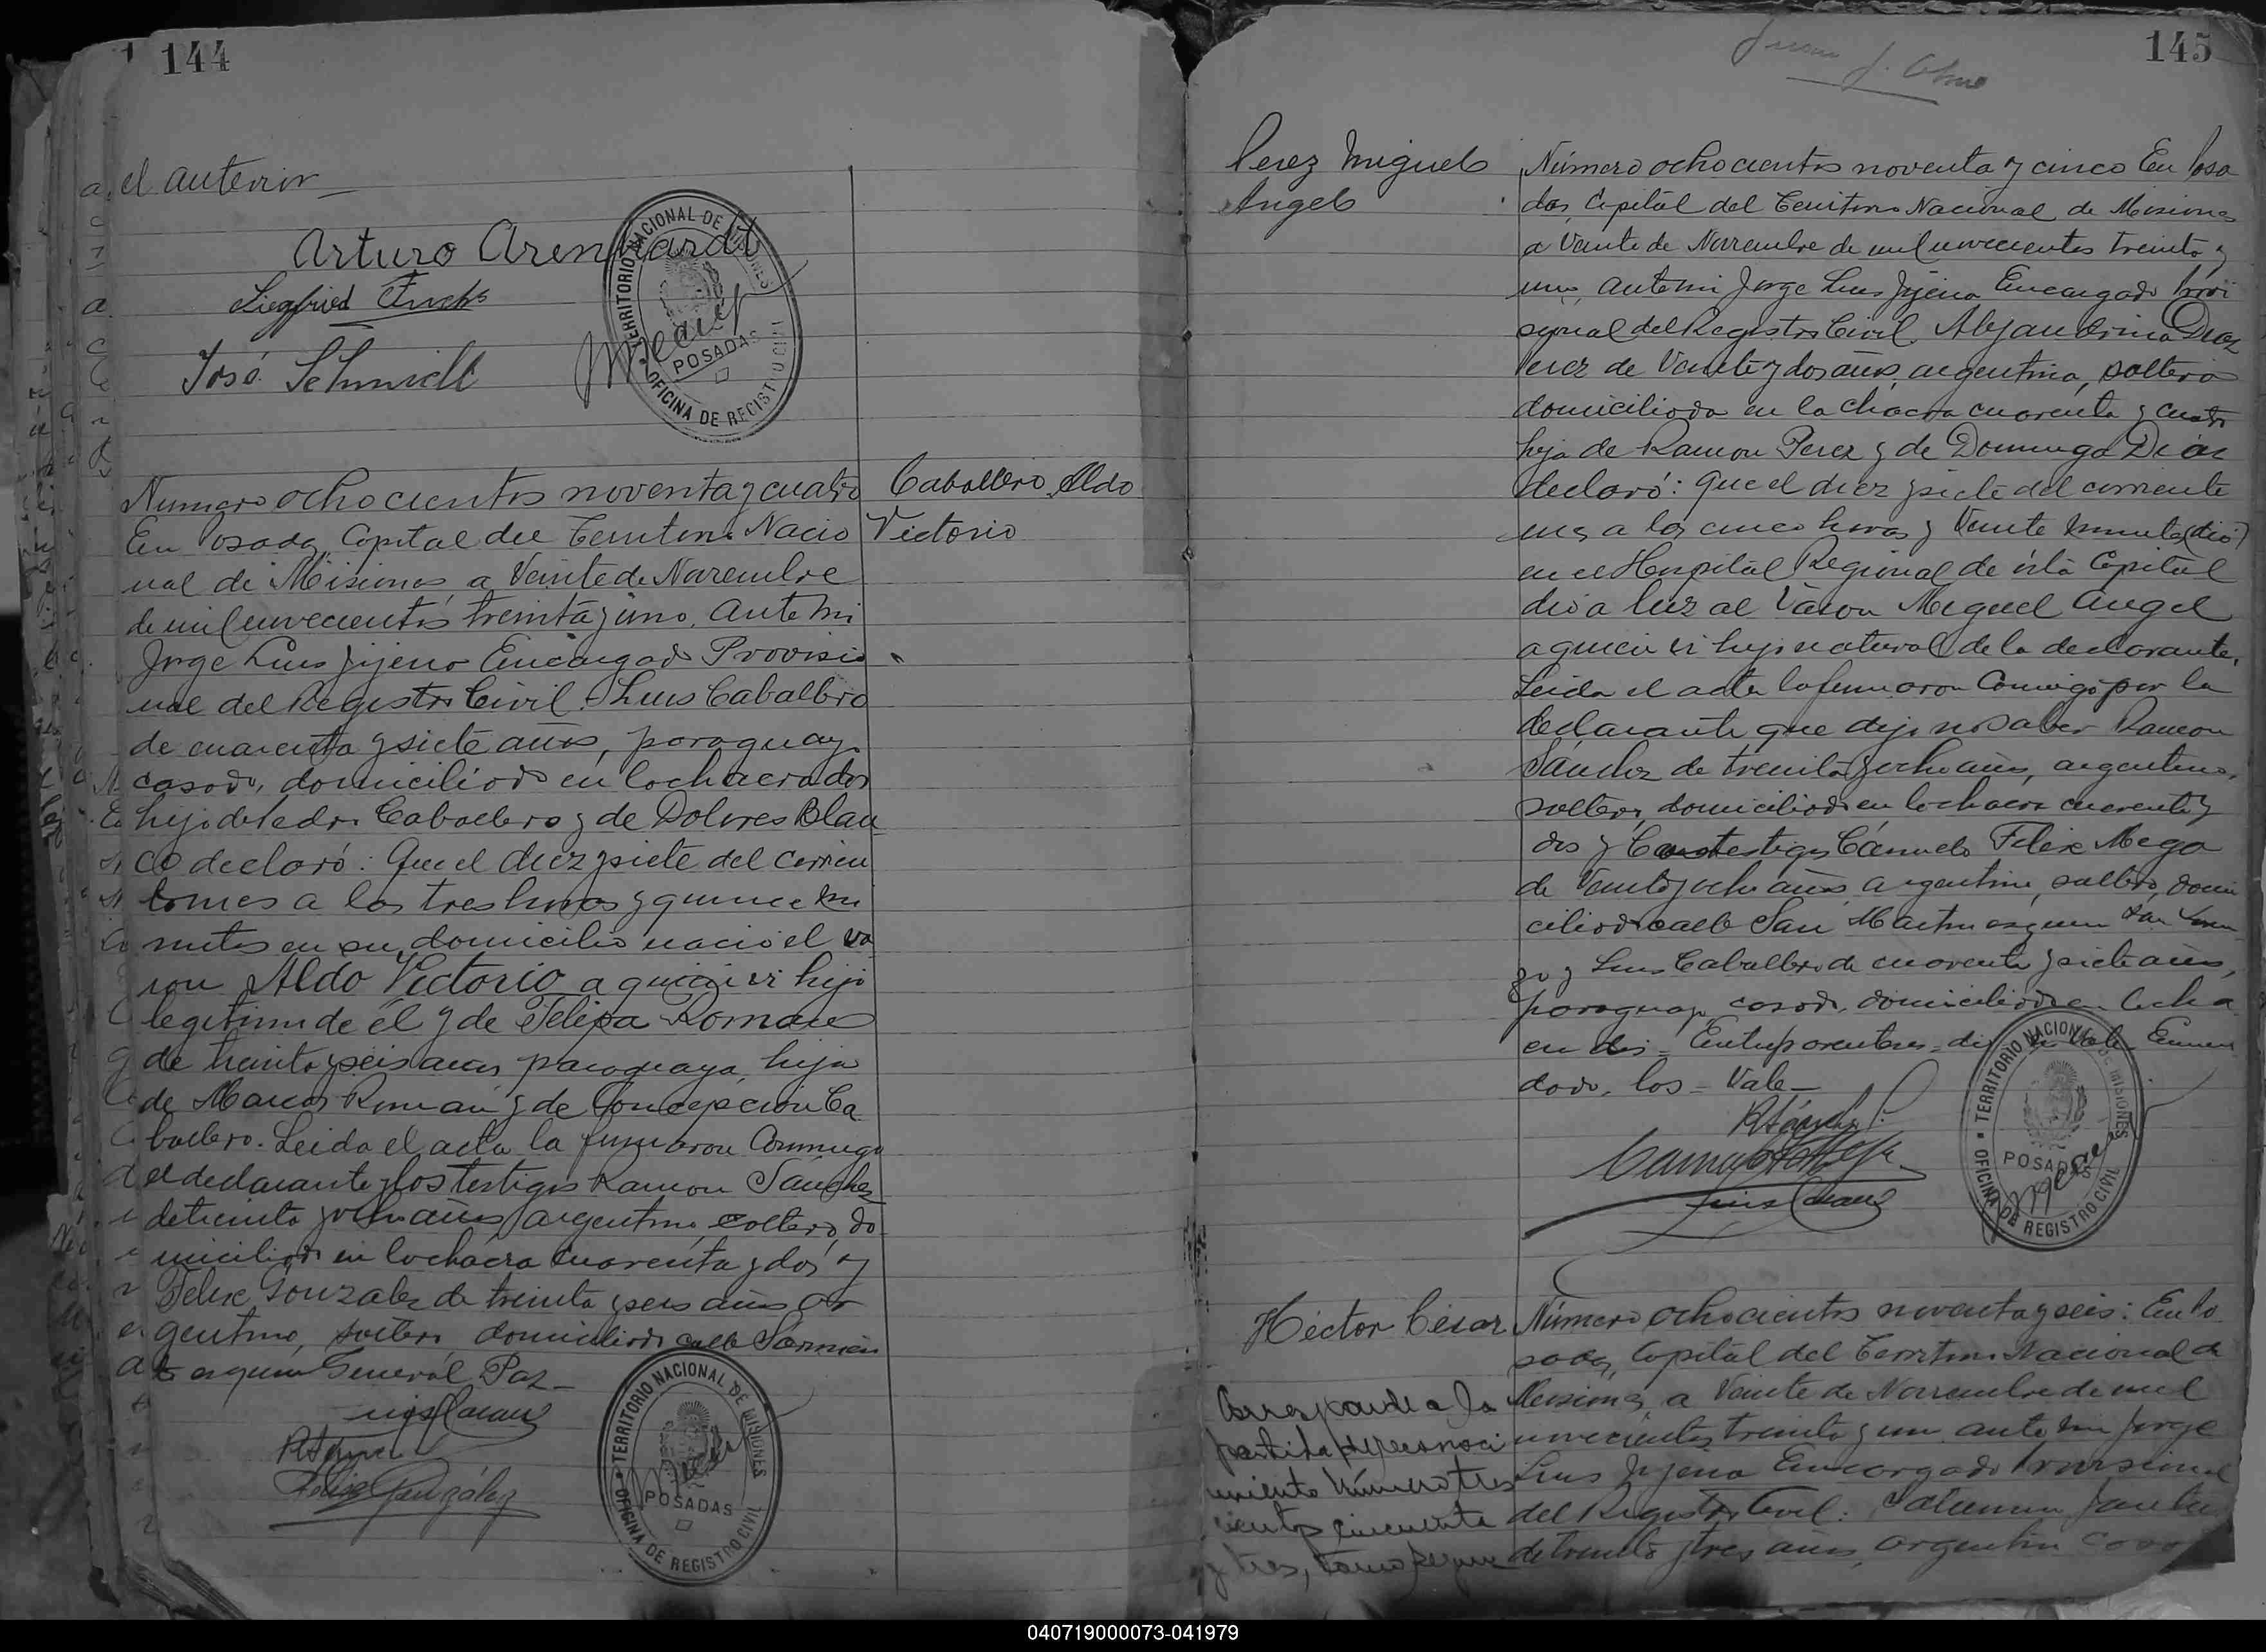 144
el anterior
Arturo Arenhardt
Siegfried Fuchs
José Schmidt
TERRITORIO NACIONAL DE MISIONES
POSADAS
OFICINA DE REGISTRO CIVIL
Caballero Aldo
Victorio
Numero ochocientos noventa y cuatro
En Posadas, Capital del Territorio Nacio
nal de Misiones, a Veinte de Noviembre
de mil novecientos treinta y uno, ante mi
Jorge Luis Jijena Encargado Provisio
nal del Registro Civil. Luis Caballero
de cuarenta y siete años, paraguayo
casado, domiciliado en la chacra dos
hijo de Pedro Caballero y de Dolores Blan
co declaró: Que el diez y siete del corrien
te mes a las tres horas y quince mi
nutos en su domicilio nació el va
ron Aldo Victorio a quien es hijo
legitimo de él y de Felipa Roman
de treinta y seis años paraguaya, hija
de Marcos Román y de Concepción Ca
ballero. Leida el acta la firmaron Conmigo
el declarante y los testigos Ramon Sánchez
de treinta y ocho años, argentino, soltero, do
miciliado en la chacra cuarenta y dos y
Felix Gonzalez de treinta y seis años ar
gentino, soltero, domiciliado calle Sarmien
to esquina General Paz_
Felix González
TERRITORIO NACIONAL DE MISIONES
POSADAS
OFICINA DE REGISTRO CIVIL
145
Perez Miguel
Angel
Número ochocientos noventa y cinco En Posa
das, Capital del Territorio Nacional de Misiones
a Veinte de Noviembre de mil novecientos treinta y
uno, ante mi Jorge Luis Jijena Encargado Provi
sional del Registro Civil. Alejandrina Diaz
Perez de Veinte y dos años, argentina, soltera
domiciliada en la chacra cuarenta y cuatro
hija de Ramon Perez y de Dominga Diaz
declaró: Que el diez y siete del corriente
mes a las cinco horas y Veinte minutos (dió)
en el Hospital Regional de esta Capital
dió a luz al Varon Miguel Angel
a quien es hijo natural de la declarante.
Leida el acta la firmaron Conmigo por la
declarante que dijo no saber Ramon
Sánchez de treinta y ocho años, argentino,
soltero, domiciliado en la chacra cuarenta y
dos y los testigos Camilo Felix Mega
de Veinte y ocho años argentino, soltero, domi
ciliado calle San Martin esquina San Loren
zo y Luis Caballero de cuarenta y siete años,
paraguayo, casado, domiciliado en la cha
cra dos = Entreparentesis = dió No Vale Enmen
dado, los = Vale_
TERRITORIO NACIONAL DE MISIONES
POSADAS
OFICINA DE REGISTRO CIVIL
Héctor César
Corresponde a la
partida de reconoci
miento número tres
cientos cincuenta
y tres, tomo
Número ochocientos noventa y seis: En Po
sadas, Capital del Territorio Nacional de
Misiones, a Veinte de Noviembre de mil
novecientos treinta y uno ante mi Jorge
Luis Jijena Encargado Provisional
del Registro Civil:
de treinta y tres años, argentino casa
040719000073-041979